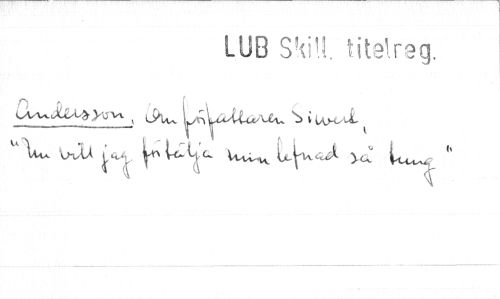 LUB Skill. titelreg.
Andersson, Om författaren Siwert,
"Nu vill jag förtälja min lefnad så tung"